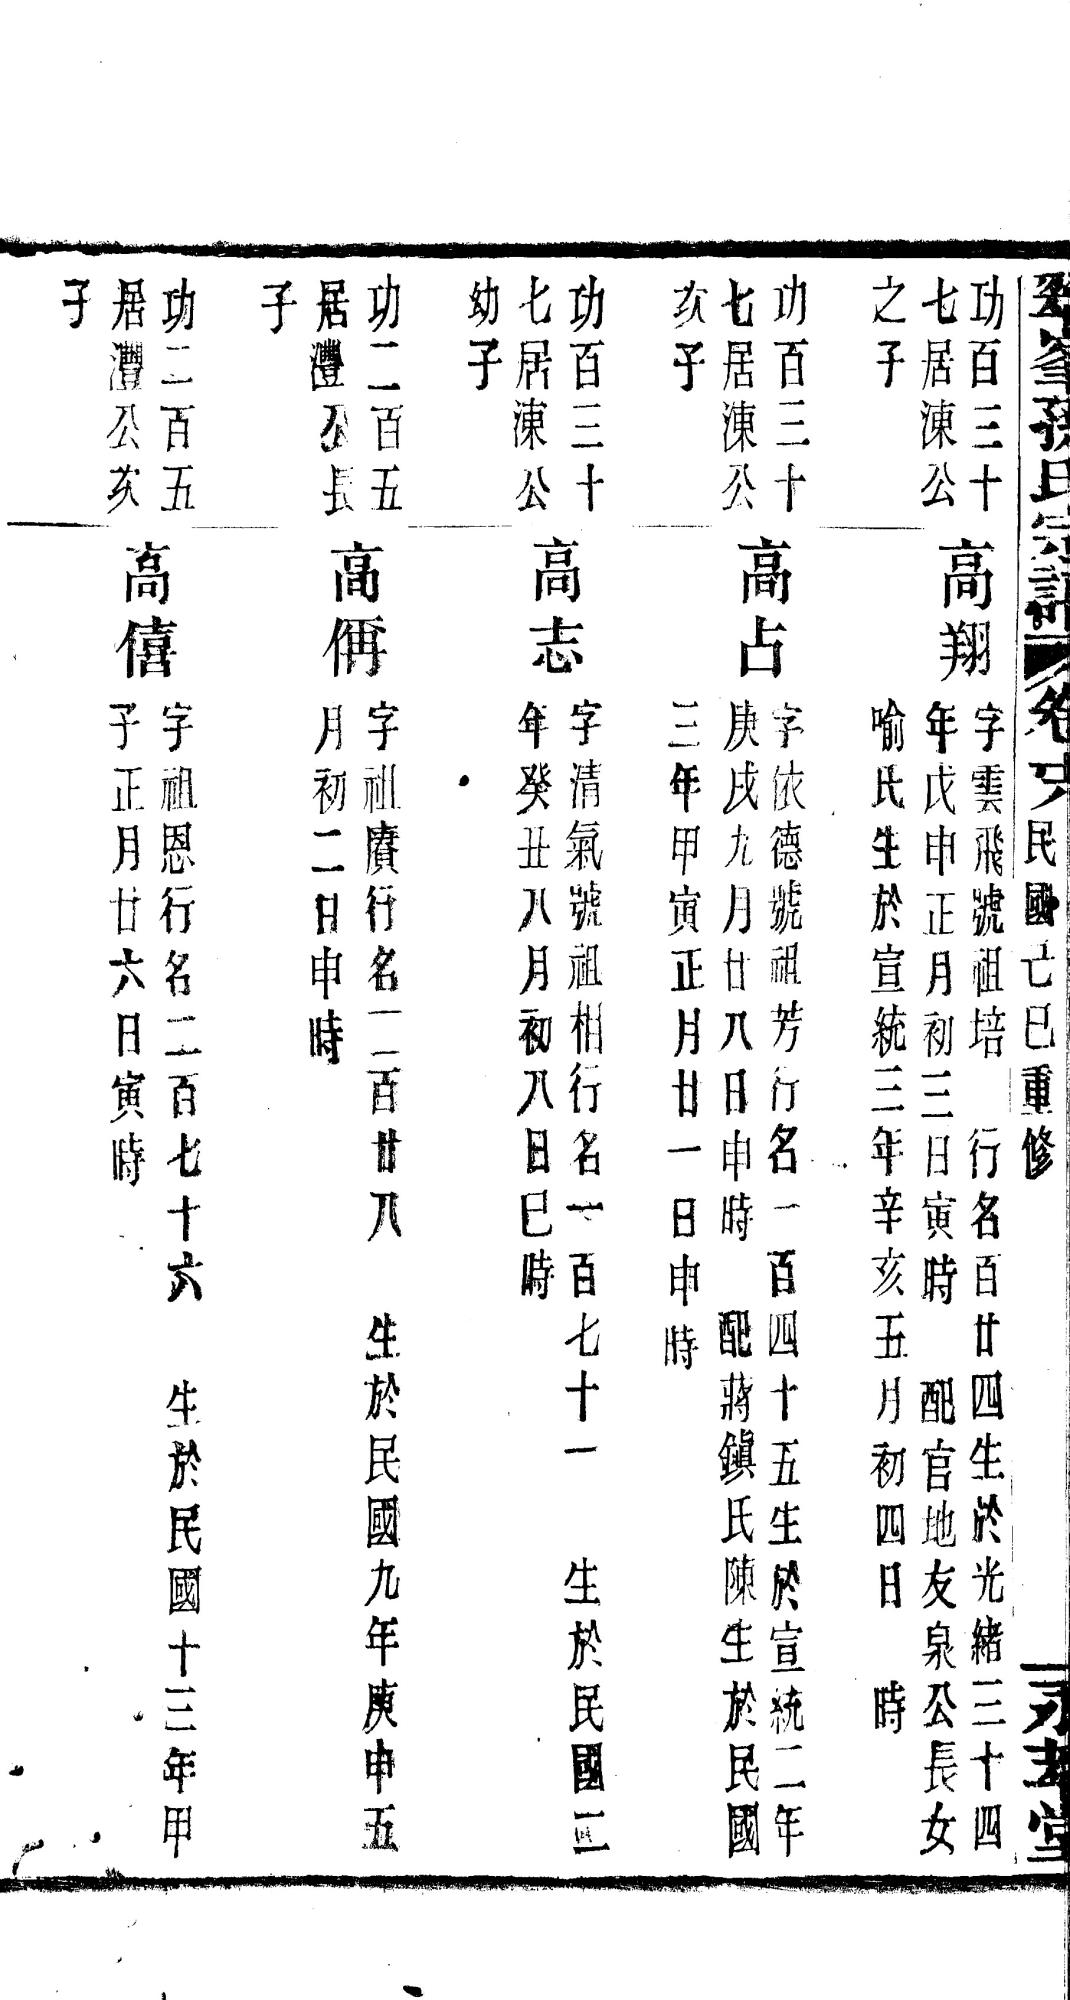 孫氏宗譜 卷 民國己巳重修 堂
功百三十
七居涷公
之子
高翔
字雲飛號祖培 行名百廿四生於光緒三十四
年戊申正月初三日寅時 配官地友泉公長女
喻氏生於宣統三年辛亥五月初四日 時
功百三十
七居涷公
次子
高占
字依德號祖芳行名一百四十五生於宣統二年
庚戌九月廿八日申時 配蔣鎮氏陳生於民國
三年甲寅正月廿一日申時
功百三十
七居涷公
幼子
高志
字清氣號祖相行名一百七十一 生於民國二
年癸丑八月初八日巳時
功二百五
居灃公長
子
高偁
字祖賡行名一百廿八 生於民國九年庚申五
月初二日申時
功二百五
居灃公次
子
高僖
字祖恩行名二百七十六 生於民國十三年甲
子正月廿六日寅時